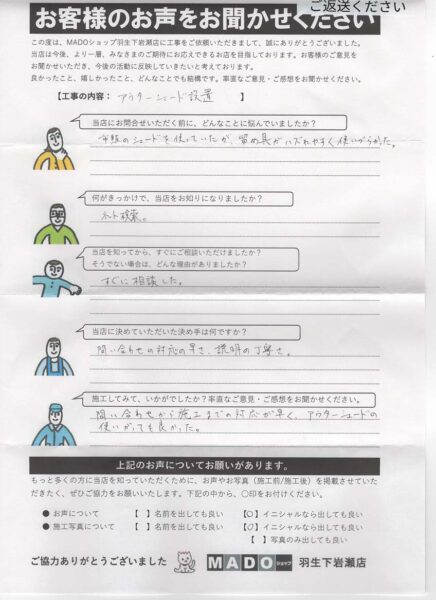 ご返送ください
お客様のお声をお聞かせください
この度は、MADOショップ羽生下岩瀬店に工事をご依頼いただきまして、誠にありがとうございました。
当店は今後、より一層、みなさまのご期待にお応えできるお店を目指しております。お客様のご意見を
お聞かせいただき、今後の活動に反映していきたいと考えております。
良かったこと、嬉しかったこと、どんなことでも結構です。率直なご意見・ご感想をお聞かせください。
【工事の内容: アウターシェード設置 】
当店にお問合せいただく前に、どんなことに悩んでいましたか?
市販のシェードを使っていたが、留め具がハズれやすく使いづらかった。
何がきっかけで、当店をお知りになりましたか?
ネット検索。
当店を知ってから、すぐにご相談いただけましたか?
そうでない場合は、どんな理由がありましたか?
すぐに相談した。
当店に決めていただいた決め手は何ですか?
問い合わせの対応の早さ、説明の丁寧さ。
施工してみて、いかがでしたか?率直なご意見・ご感想をお聞かせください。
問い合わせから施工までの対応が早く、アウターシェードの
使いがっても良かった。
上記のお声についてお願いがあります。
もっと多くの方に当店を知っていただくために、お声やお写真(施工前/施工後)を掲載させていた
だきたく、ぜひご協力をお願いいたします。下記の中から、〇印をお付けください。
● お声について 【 】名前を出しても良い 【〇】イニシャルなら出しても良い
● 施工写真について 【 】名前を出しても良い 【〇】イニシャルなら出しても良い
【 】写真のみ出しても良い
ご協力ありがとうございました MADOショップ 羽生下岩瀬店